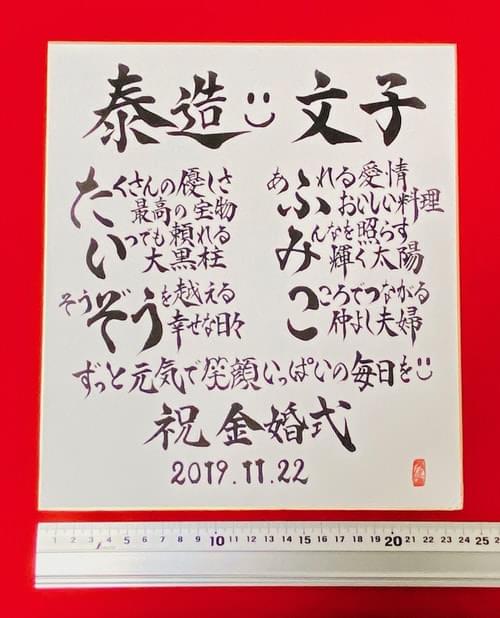 泰造 文子
たくさんの優しさ
最高の宝物
いつでも頼れる
大黒柱
そうぞうを越える
幸せな日々
あふれる愛情
おいしい料理
みんなを照らす
輝く太陽
こころでつながる
仲よし夫婦
ずっと元気で笑顔いっぱいの毎日を
祝 金婚式
2019.11.22
1 2 3 4 5 6 7 8 9 10 11 12 13 14 15 16 17 18 19 20 21 22 23 24 25